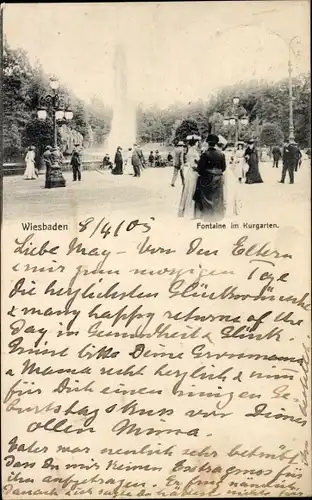 Wiesbaden 8/4/05 Fontaine im Kurgarten.
Liebe May – Von den Eltern
& mir zum morgigen Tage
die herzlichsten Glückwünsche
& many happy returns of the
Day in Gesundheit & Glück.
Grüsse bitte Deine Grossmama
& Mama recht herzlich & nimm
für Dich einen innigen Ge-
burtstags Kuss von Deiner
ollen Minna.
Vater war neulich sehr betrübt
Dass Du mir keinen Extragruss für
ihn aufgetragen. Er frug nämlich
Danach